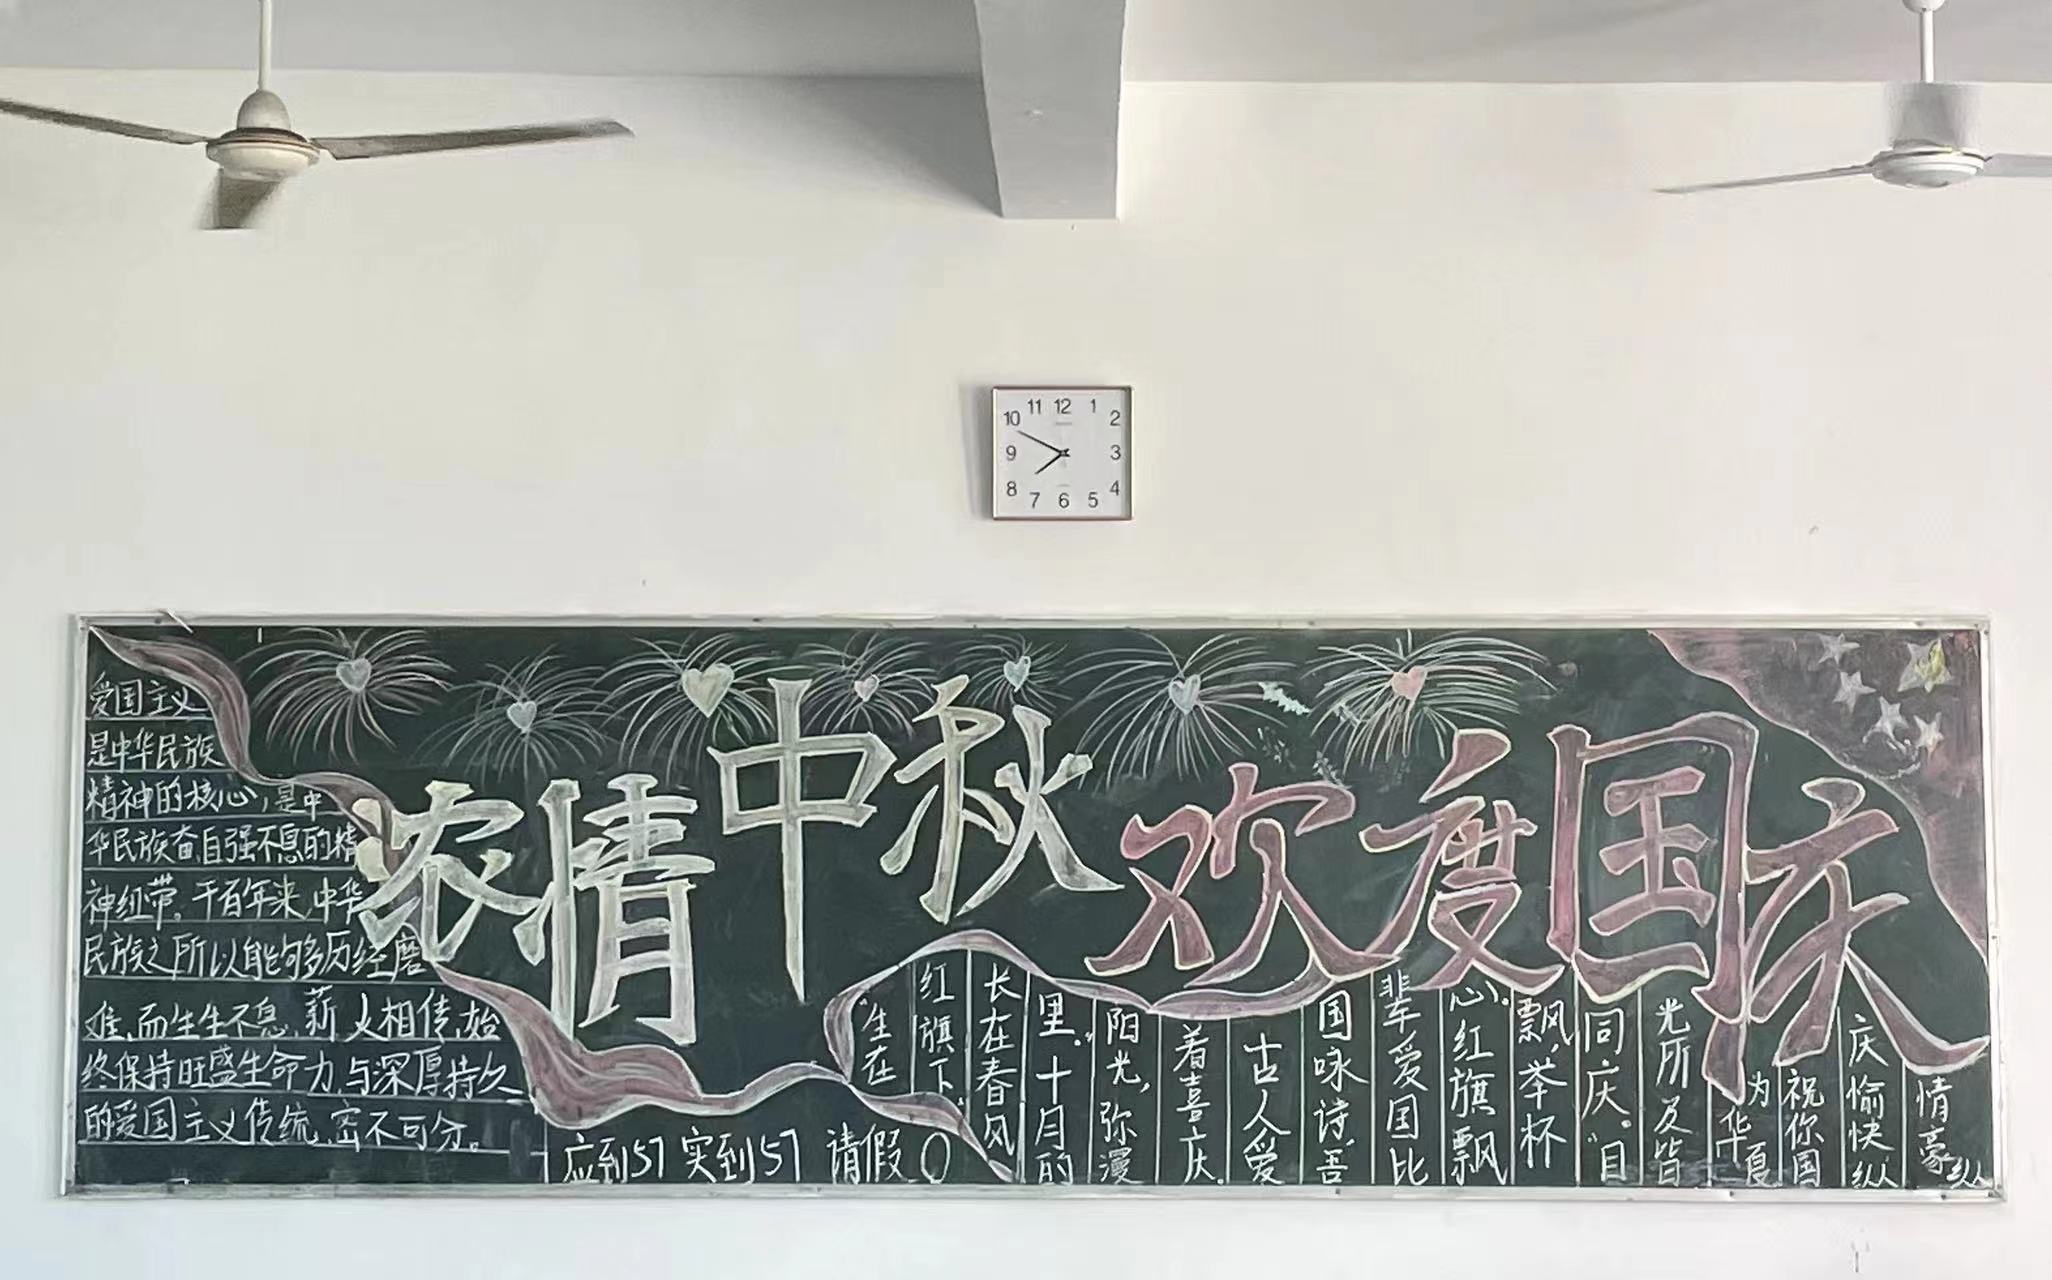 11 12 1
10 2
9 3
8 4
7 6 5
浓情中秋
欢度国庆
爱国主义
是中华民族
精神的核心,是中
华民族奋自强不息的精
神纽带。千百年来,中华
民族之所以能够多历经磨
难,而生生不息,薪火相传,始
终保持旺盛生命力,与深厚持久
的爱国主义传统,密不可分。
应到57 实到57 请假 0
“生在
红旗下,
长在春风
里。十月的
阳光,弥漫
着喜庆。
古人爱
国咏诗,吾
辈爱国比
心”。红旗飘
飘,举杯
同庆。“目
光所及皆
为华夏
祝你国
庆愉快,纵
情豪纵